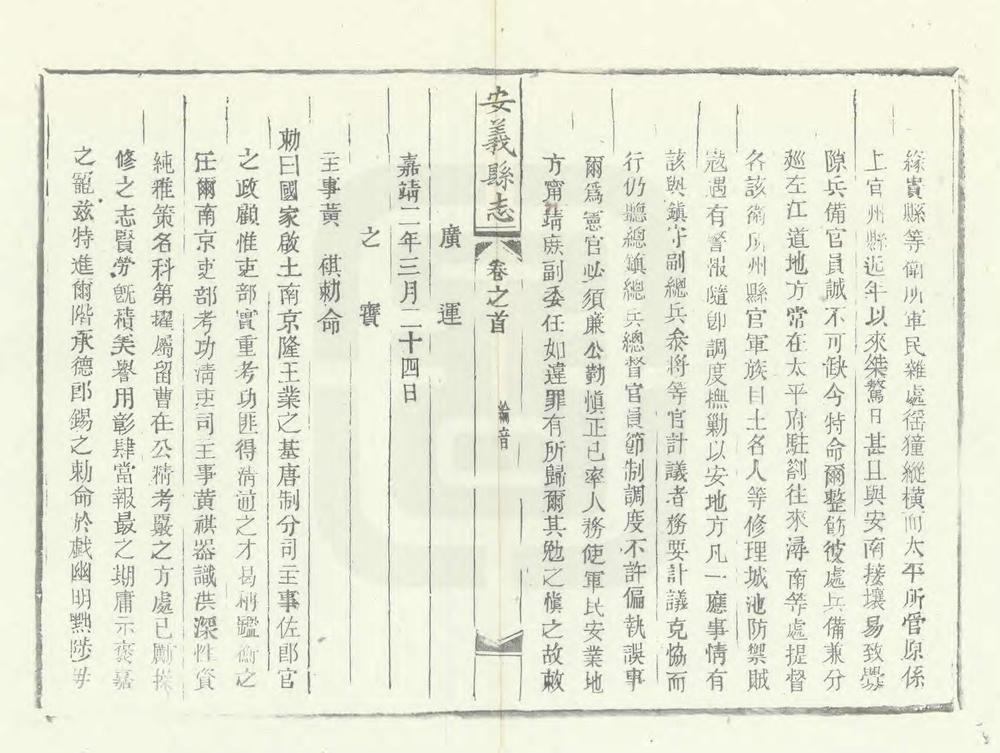 緣賓縣等衛所軍民雜處徭獞縱橫而太平所管原係
上官州縣近年以來桀驁日甚且與安南接壤易致釁
隙兵備官員誠不可缺今特命爾整飭彼處兵備兼分
廵左江道地方常在太平府駐劄往來潯南等處提督
各該衛所州縣官軍族目土名人等修理城池防禦賊
寇遇有警報隨卽調度撫勦以安地方凡一應事情有
該與鎮守副總兵叅將等官計議者務要計議克協而
行仍聽總鎮總兵總督官員節制調度不許偏執誤事
爾爲憲官必須廉公勤慎正已率人務使軍民安業地
方甯靖庻副委任如違罪有所歸爾其勉之慎之故敕
安義縣志
卷之首
綸音
廣運
嘉靖二年三月二十四日
之寳
主事黃祺勅命
勅曰國家啟土南京隆王業之基唐制分司主事佐郎官
之政顧惟吏部實重考功匪得淸通之才曷稱鑑衡之
任爾南京吏部考功淸吏司主事黃祺器識洪深性質
純雅策名科第擢屬留曹在公精考覈之方處已勵操
修之志賢勞旣積美譽用彰肆當報最之期庸示褒嘉
之寵玆特進爾階承德郎錫之勅命於戱幽明黜陟毋